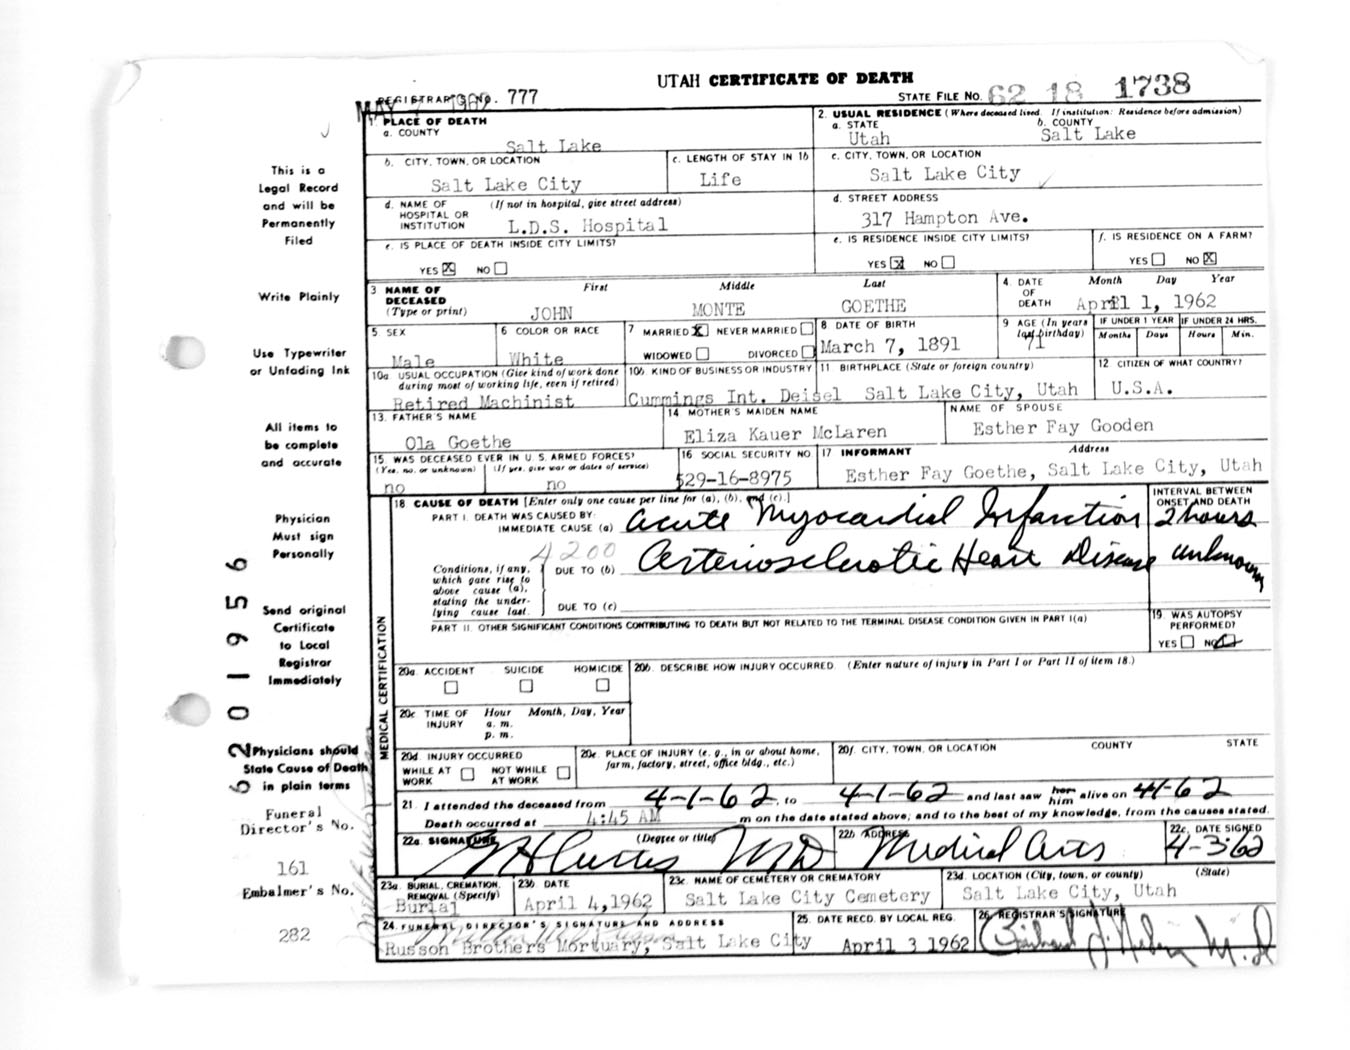 UTAH CERTIFICATE OF DEATH
REGISTRAR'S NO. 777
STATE FILE NO. 62 18 1738
MAY
1. PLACE OF DEATH
a. COUNTY
Salt Lake
2. USUAL RESIDENCE (Where deceased lived. If institution: Residence before admission)
a. STATE
Utah
b. COUNTY
Salt Lake
b. CITY, TOWN, OR LOCATION
Salt Lake City
c. LENGTH OF STAY IN 1b
Life
c. CITY, TOWN, OR LOCATION
Salt Lake City
d. NAME OF HOSPITAL OR INSTITUTION (If not in hospital, give street address)
L.D.S. Hospital
d. STREET ADDRESS
317 Hampton Ave.
e. IS PLACE OF DEATH INSIDE CITY LIMITS?
YES X NO
e. IS RESIDENCE INSIDE CITY LIMITS?
YES X NO
f. IS RESIDENCE ON A FARM?
YES NO X
3 NAME OF DECEASED (Type or print)
First Middle Last
JOHN MONTE GOETHE
4. DATE OF DEATH
Month Day Year
April 1, 1962
5. SEX
Male
6 COLOR OR RACE
White
7 MARRIED X NEVER MARRIED
WIDOWED DIVORCED
8 DATE OF BIRTH
March 7, 1891
9 AGE (In years last birthday)
71
IF UNDER 1 YEAR
Months Days
IF UNDER 24 HRS.
Hours Min.
10a USUAL OCCUPATION (Give kind of work done during most of working life, even if retired)
Retired Machinist
10b. KIND OF BUSINESS OR INDUSTRY
Cummings Int. Deisel
11 BIRTHPLACE (State or foreign country)
Salt Lake City, Utah
12 CITIZEN OF WHAT COUNTRY?
U.S.A.
13. FATHER'S NAME
Ola Goethe
14 MOTHER'S MAIDEN NAME
Eliza Kauer McLaren
NAME OF SPOUSE
Esther Fay Gooden
15. WAS DECEASED EVER IN U.S. ARMED FORCES?
(Yes, no, or unknown) (If yes, give war or dates of service)
no no
16 SOCIAL SECURITY NO.
529-16-8975
17 INFORMANT Address
Esther Fay Goethe, Salt Lake City, Utah
18 CAUSE OF DEATH [Enter only one cause per line for (a), (b), and (c).]
PART I. DEATH WAS CAUSED BY:
IMMEDIATE CAUSE (a) Acute Myocardial Infarction
INTERVAL BETWEEN ONSET AND DEATH
2 hours
4200
Conditions, if any, which gave rise to above cause (a), stating the underlying cause last.
DUE TO (b) Arteriosclerotic Heart Disease unknown
DUE TO (c)
PART II. OTHER SIGNIFICANT CONDITIONS CONTRIBUTING TO DEATH BUT NOT RELATED TO THE TERMINAL DISEASE CONDITION GIVEN IN PART I(a)
19. WAS AUTOPSY PERFORMED?
YES NO
MEDICAL CERTIFICATION
20a. ACCIDENT SUICIDE HOMICIDE
20b. DESCRIBE HOW INJURY OCCURRED. (Enter nature of injury in Part I or Part II of item 18.)
20c TIME OF INJURY
Hour Month, Day, Year
a. m.
p. m.
20d. INJURY OCCURRED
WHILE AT WORK NOT WHILE AT WORK
20e. PLACE OF INJURY (e. g., in or about home, farm, factory, street, office bldg., etc.)
20f. CITY, TOWN, OR LOCATION COUNTY STATE
21. I attended the deceased from 4-1-62, to 4-1-62 and last saw her him alive on 4-1-62
Death occurred at 4:45 AM m on the date stated above; and to the best of my knowledge, from the causes stated.
22a. SIGNATURE (Degree or title)
Curtis MD
22b ADDRESS
Medical Arts
22c. DATE SIGNED
4-3-62
23a. BURIAL, CREMATION, REMOVAL (Specify)
Burial
23b DATE
April 4, 1962
23c NAME OF CEMETERY OR CREMATORY
Salt Lake City Cemetery
23d. LOCATION (City, town, or county) (State)
Salt Lake City, Utah
24. FUNERAL DIRECTOR'S SIGNATURE AND ADDRESS
Russon Brothers Mortuary, Salt Lake City
25. DATE RECD. BY LOCAL REG.
April 3 1962
26. REGISTRAR'S SIGNATURE
This is a
Legal Record
and will be
Permanently
Filed
Write Plainly
Use Typewriter
or Unfading Ink
All items to
be complete
and accurate
Physician
Must sign
Personally
Send original
Certificate
to Local
Registrar
Immediately
Physicians should
State Cause of Death
in plain terms
Funeral
Director's No.
161
Embalmer's No.
282
62 01956